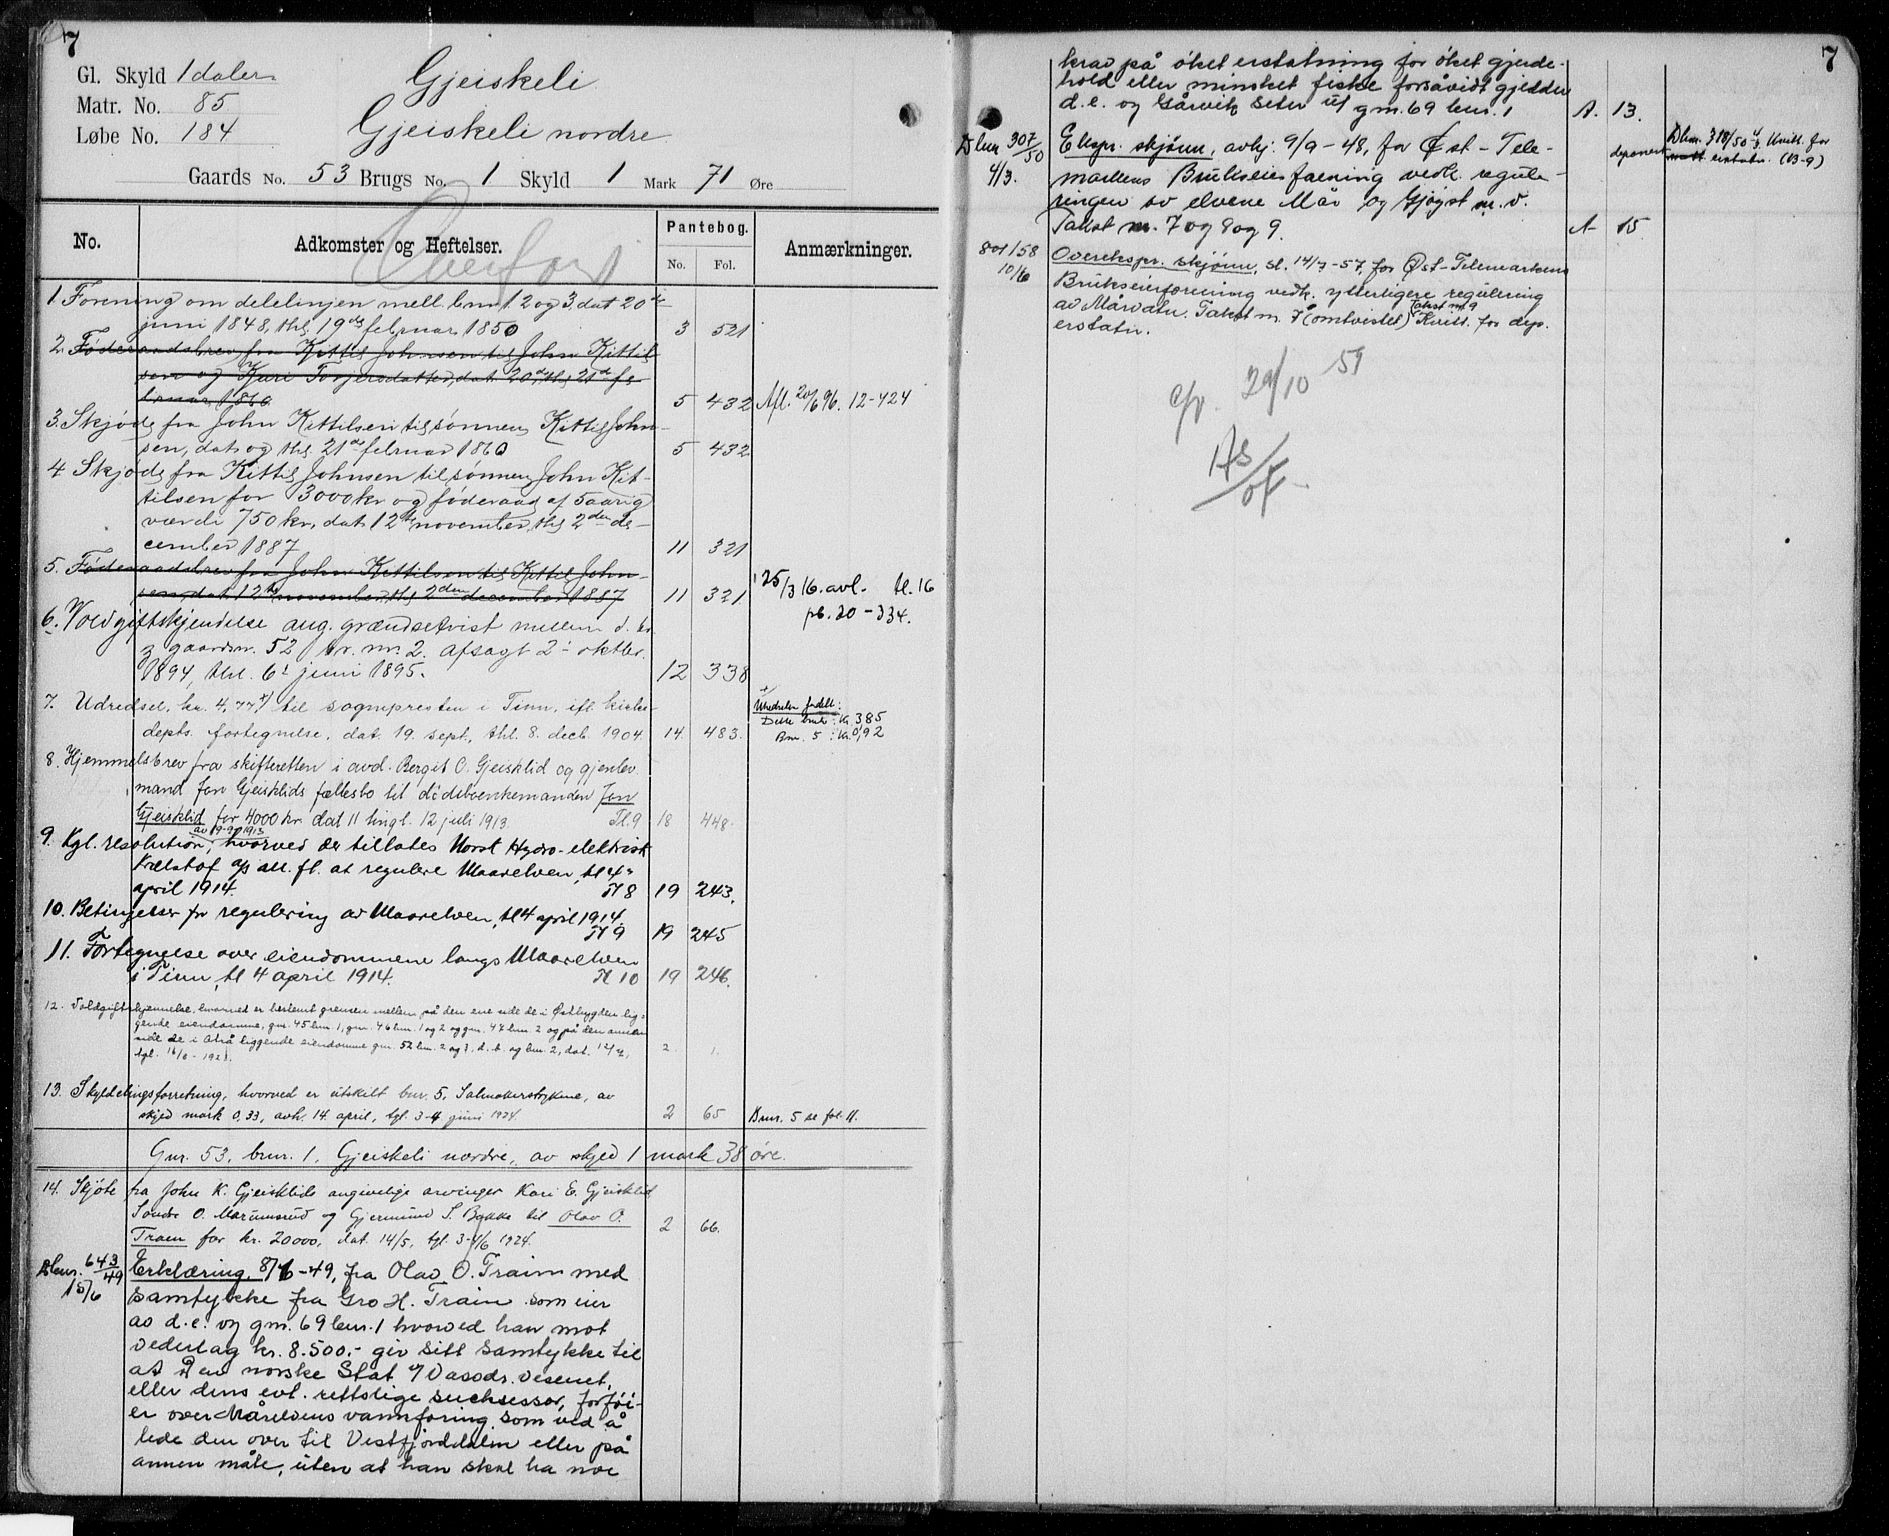 7
Gl. Skyld 1 daler
Matr. No. 85
Løbe No. 184
Gjeiskeli
Gjeiskeli nordre
Gaards No. 53 Brugs No. 1 Skyld 1 Mark 71 Øre
Overført
No. Adkomster og Heftelser. Pantebog. Anmærkninger.
No. Fol.
1. Forening om delelinjen mell. bnr. 1 2 og 3, dat 20de
juni 1848, thl. 19de februar 1850 3 521
2. Føderaadsbrev fra Kittil Johnsen til John Kittil-
sen og Kari Torjersdatter, dat. 20de, thl. 21de fe-
bruar 1860 5 432 Afl. 20/6 96. 12-424
3. Skjøde fra John Kittilsen til sønnen Kittil John-
sen, dat. og thl. 21de februar 1860 5 432
4 Skjøde fra Kittil Johnsen til sønnen John Kit-
tilsen for 3000 kr og føderaad af 5 aarig
værdi 750 kr, dat. 12te november, thl. 2den de-
cember 1887 11 321
5. Føderaadsbrev fra John Kittilsen til Kittil John-
sen dat 12te november, thl. 2den december 1887 11 321. 25/3 16. avl. tl. 16
pb. 20-334.
6. Voldgiftskjendelse ang. grændsetvist mellem d. br.
og gaardsn. 52 br. nr. 2. afsagt 2- oktbr.
1894, thl. 6- juni 1895. 12 338
7. Udredsel, kr. 4,77 x) til sognepresten i Tinn, ifl. kirke-
depts. fortegnelse, dat. 19. sept., thl. 8. decb. 1904. 14. 483.
x) Utredselen fordelt:
Dette bruk: Kr. 385
Bnr. 5: Kr. 0,92
8. Hjemmelsbrev fra skifteretten i avd. Bergit O. Gjeisklid og gjenlev.
mand Jon Gjeisklids fællesbo til dødsboenkemanden Jon
Gjeisklid for 4000 kr dat 11 tingl. 12 juli 1913 Tl. 9 18 448.
9. Kgl. resolution, av 19-9-1913 hvorved der tillates Norsk Hydro-elektrisk
Kvælstof a/s m. fl. at regulere Maarelven, tl 4-
april 1914. Tl 8 19 243.
10. Betingelser for regulering av Maarelven, tl 4 april 1914.
Tl 9 19 245
11. Fortegnelse over eiendommene langs Maarelven
i Tinn, tl 4 april 1914. Tl 10 19 246.
12. Voldgiftskjennelse, hvorved er bestemt grensen mellem på den ene side de i Østbygden lig-
gende eiendomme, gnr. 45 bnr. 1, gnr. 46 bnr. 1 og 2 og gnr. 47 bnr. 2 og på den annen
side de i Atrå liggende eiendomme gnr. 52 bnr. 2 og 3, d. b. og bnr. 2, dat.
tgl. 2. 1.
13. Skylddelingsforretning, hvorved er utskilt bnr. 5, Salmakerstykene, av
skyld mark 0,33, avh. 14 april, tgl. 3-4 juni 1924 2 65 Bnr. 5 se fol. 11.
Gnr. 53, bnr. 1. Gjeiskeli nordre, av skyld 1 mark 38 øre.
14. Skjøte fra John K. Gjeisklids angivelige arvinger Kari E. Gjeisklid
Sondre O. Marumsrud og Gjermund S. Bakke til Olav O.
Traen for kr. 20000, dat. 14/5, tgl. 3-4/6 1924. 2 66.
Dbnr. 643/49
15/6
Erklæring, 8/6-49, fra Olav O. Traim med
samtykke fra Gro H. Traim som eier
av d.e. og gnr. 69 bnr. 1 hvorved han mot
vederlag kr. 8.500.- gir sitt samtykke til
at Den norske Stat v/ Vassdr. vesenet,
eller dens evt. rettslige suksessor, forføi-
er over Mårelvens vannføring som ved å
lede den over til Vestfjorddalen eller på
annen måte, uten at han skal ha noe
7
krav på øket erstatning for øket gjerde-
hold eller minsket fiske forsåvidt gjelder
d.e. og Gårvik seter u/ gnr. 69 bnr. 1 A. 13.
Dbnr 307/50
4/3.
Ekspr. skjønn, avhj. 9/9-48, for Øst-Tele-
markens Brukseierforening vedk. regule-
ringen av elvene Mår og Gjøyst m. v.
Takst nr. 7 og 8 og 9. A 15
deponert
Dbnr. 318/50 4/3 Kvitt. for
erstatn. (13-9)
801/58
10/6
Overekspr. skjønn, sl. 14/7-57, for Øst-Telemarkens
Brukseierforening vedk. ytterligere regulering
av Mårvatn. Takst nr. 7 (omtvistet) Takst nr. 9 Kvitt. for dep.
erstatn.
29/10 59